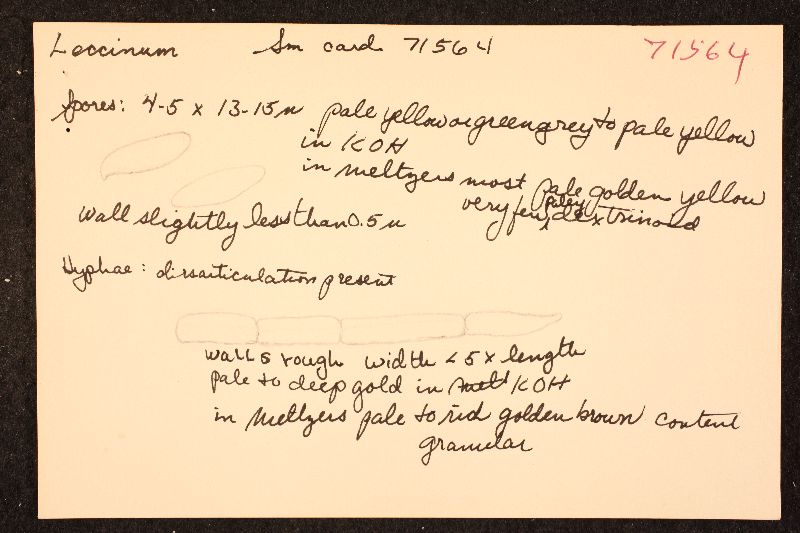 Leccinum Sm card 71564 71564
spores: 4-5 x 13-15 u pale yellow or green grey to pale yellow
in KOH
in meltzers most pale golden yellow
very few paley dextrinoid
wall slightly less than 0.5 u
Hyphae: dissarticulation present
walls rough width < 5 x length
pale to deep gold in melt KOH
in meltzers pale to rid golden brown content
granular